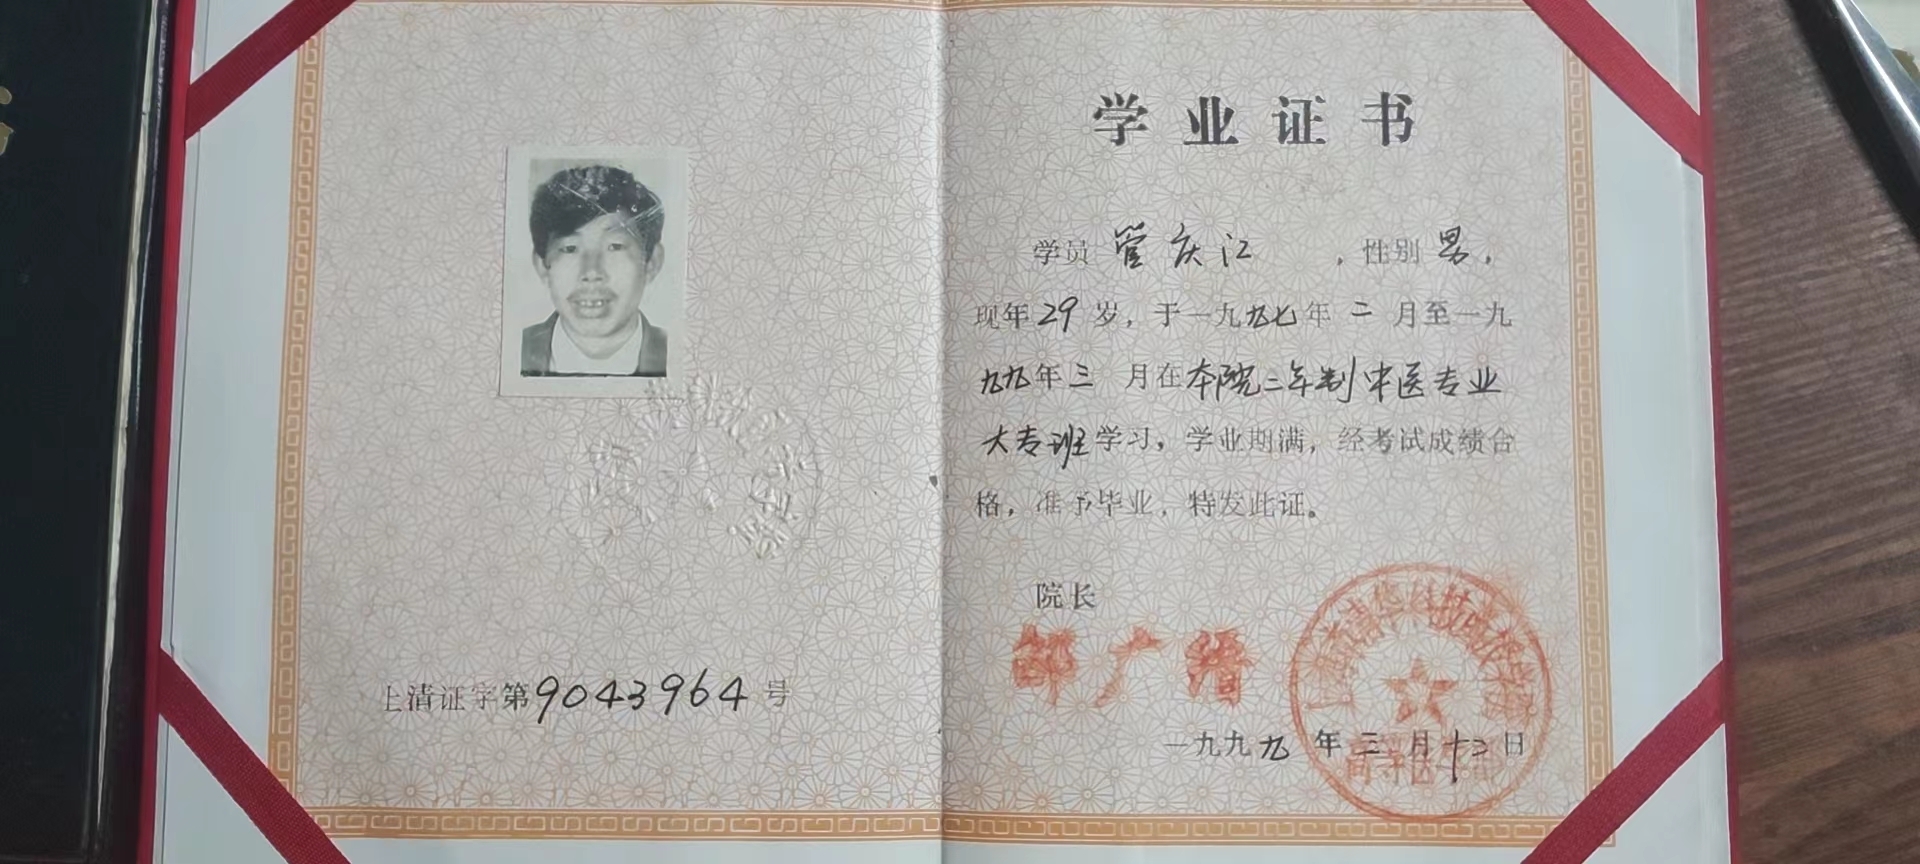 上清证字第9043964号
学业证书
学员 管庆江 ，性别 男，
现年29岁，于一九九七年二月至一九
九九年三月在本院二年制中医专业
大专班学习，学业期满，经考试成绩合
格，准予毕业，特发此证。
院长
邰广缙
一九九九年三月十二日